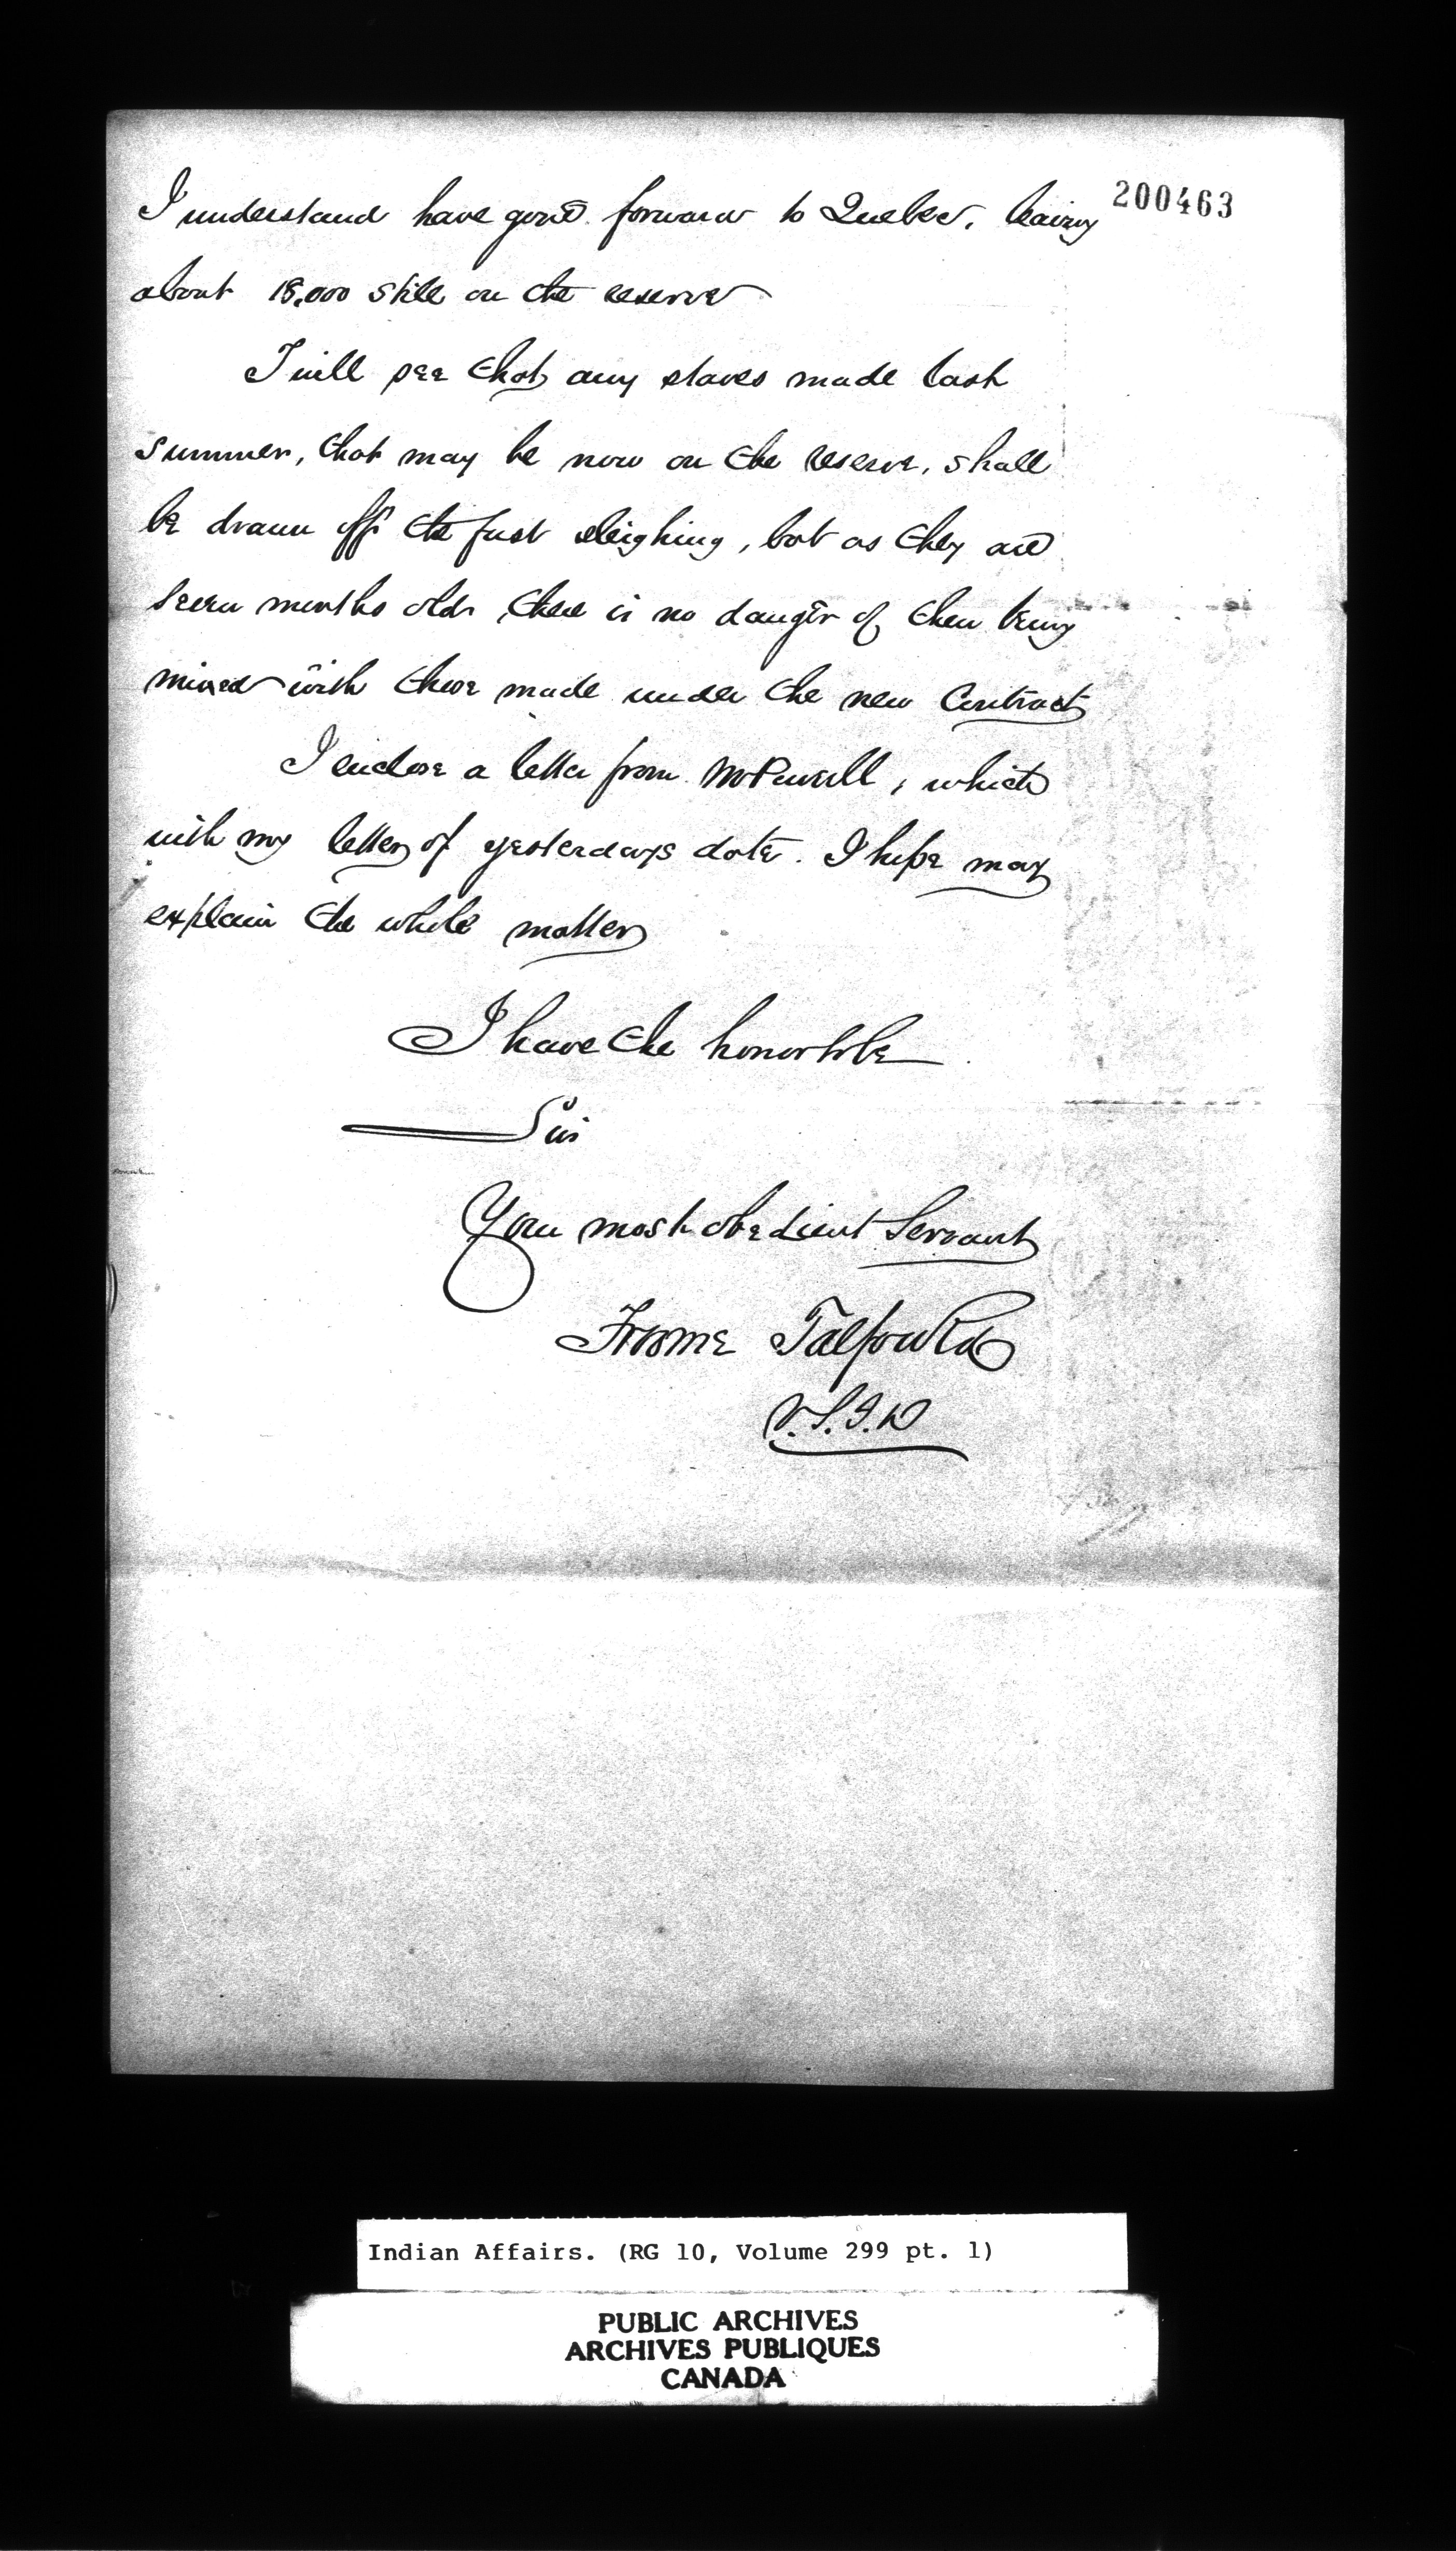 200463
I understand have gone forward to Quebec, leaving
about 18,000 still on the reserve
I will see that any staves made last
summer, that may be now on the reserve, shall
be drawn off the first sleighing, but as they are
seven months old, there is no danger of their being
mixed with those made under the new Contract
I enclose a letter from Mr Powell, which
with my letter of yesterdays date. I hope may
explain the whole matter
I have the honor to be
Sir
Your most obedient Servant
Froome Talfourd
V.S.I.D
Indian Affairs. (RG 10, Volume 299 pt. 1)
PUBLIC ARCHIVES
ARCHIVES PUBLIQUES
CANADA